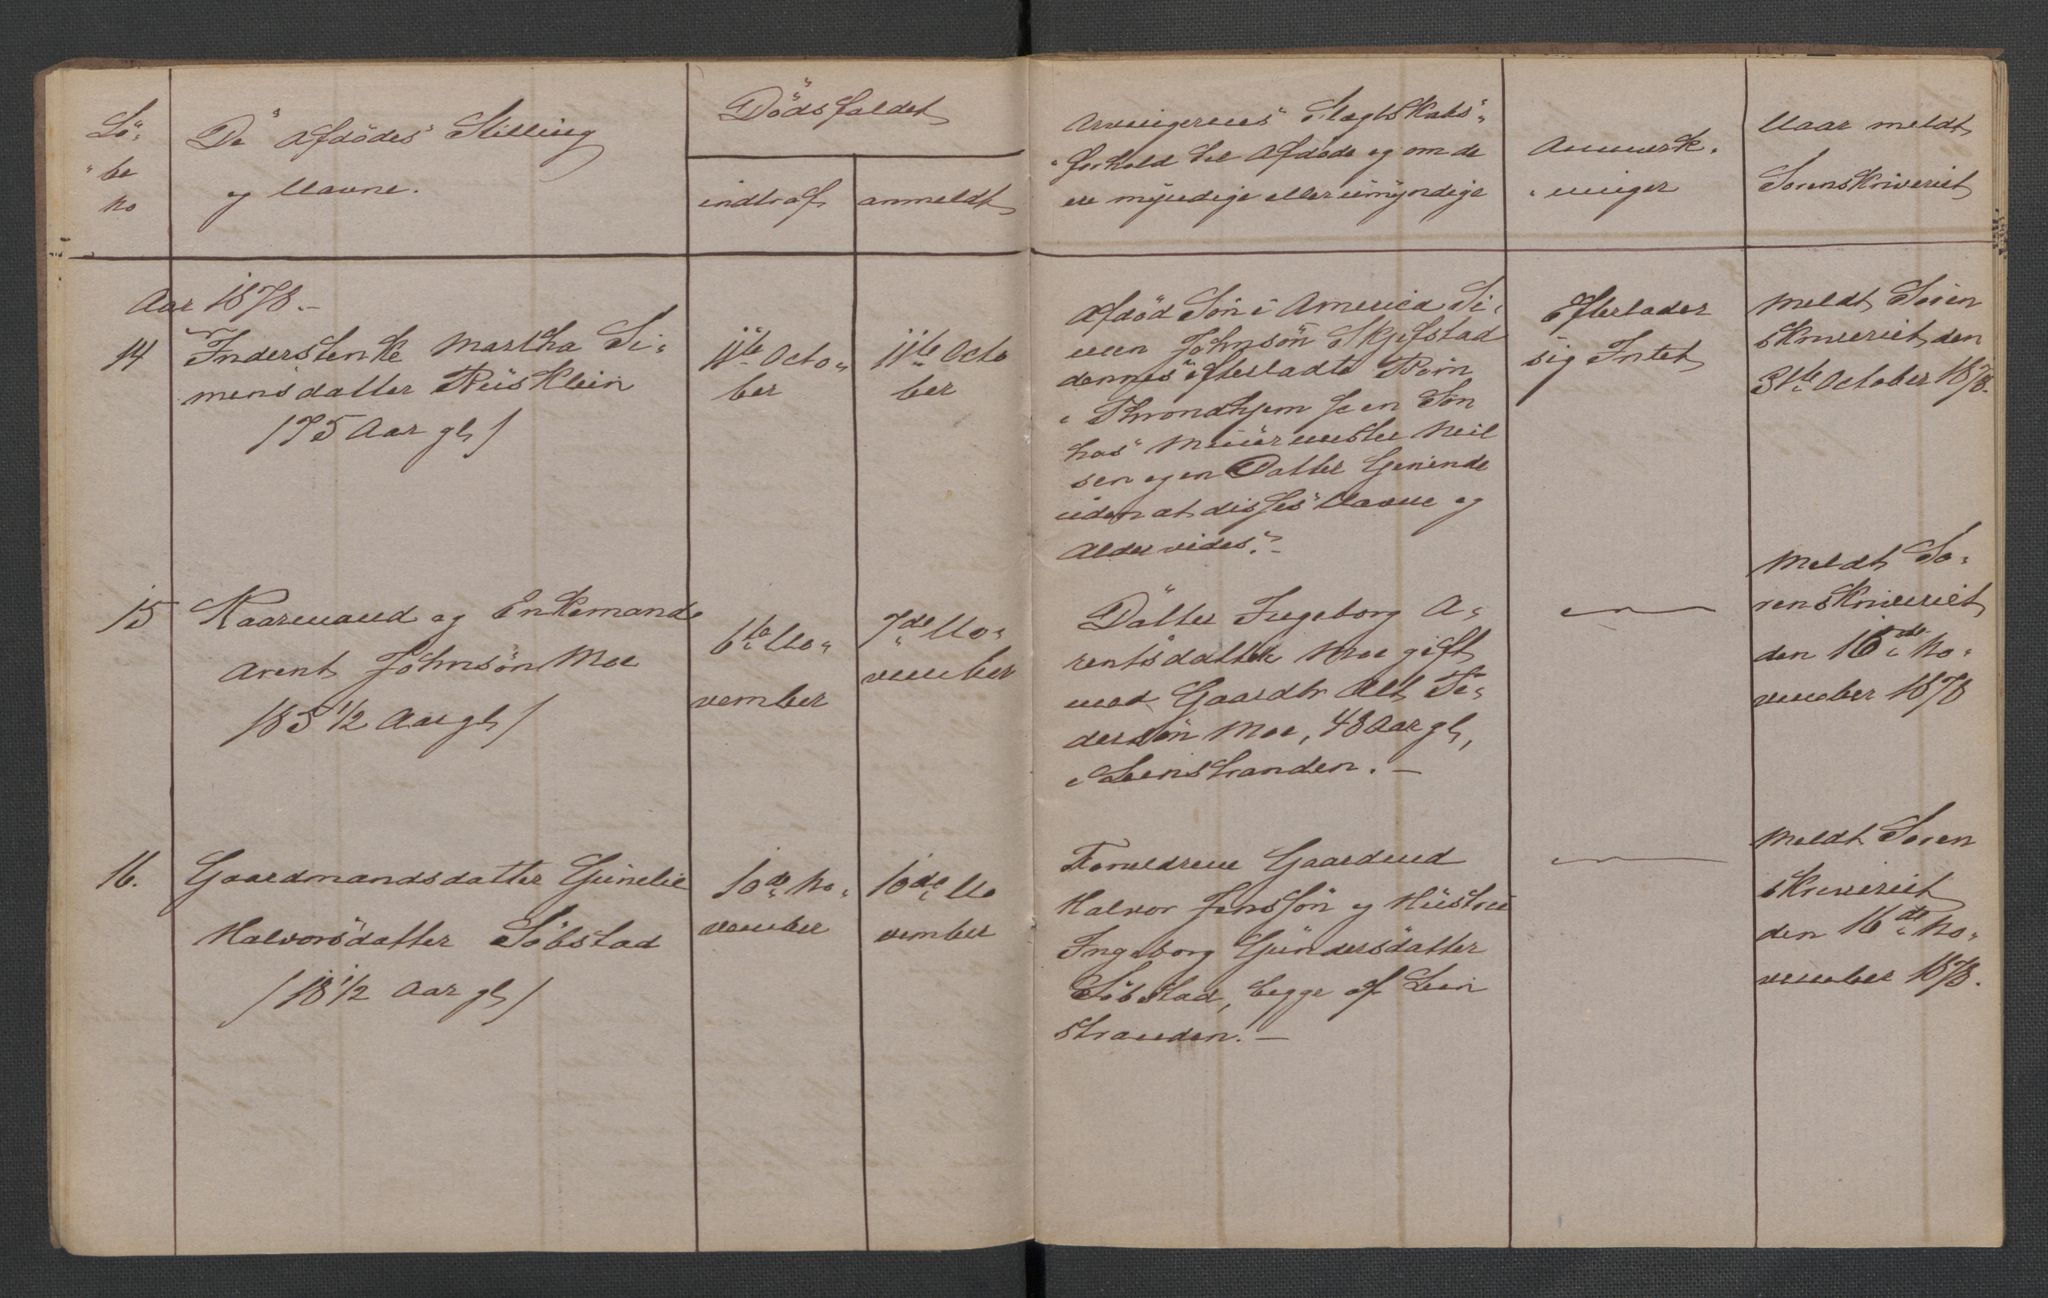 Lö-
be
no
De Afdödes Stilling
og Navne.
Dödsfaldet
indtraf
anmeldt
Arvingernes Slægtskabs-
forhold til Afdøde og om de
ere myndige eller umyndige
Anmærk-
ninger
Naar meldt
Sorenskriveriet
Aar 1878.-
14
Inderstenke Martha Si-
mensdatter Rüsklein
/75 Aar gl/
11te Octo-
ber
11te Octo
ber
Afdöd Sön i America Si-
men Johnsön Skjefstad
dennes efterladte Börn
i Throndhjem Je en Sön
hos Müürmester Neil
sen og en Datter Genende
uden at disses Navne og
Alder vides.-
Efterlader
sig Intet
Meldt Soren
skriveriet den
31te October 1878.
15
Kaarmand og Enkemand
Arent Johnsön Moe
/83 1/2 Aar gl/
6te No-
vember
7de No-
vember
Datter Ingeborg A-
rentsdatter Moe gift
med Gaardbr
dersön Moe, 48 Aar gl,
i Leinstranden.-
Meldt So-
renskriveriet
den 16de No-
vember 1878
16.
Gaardmandsdatter Günelie
Halvorsdatter Söbstad
/18 1/2 Aar gl/
10de No-
vember
10de No
vember
Foreldrene Gaardmd
Halvor Jenssön og Hüstru
Ingeborg Gündersdatter
Söbstad, begge af Lein
stranden.-
Meldt Soren
skriveriet
den 16de No-
vember 1878.